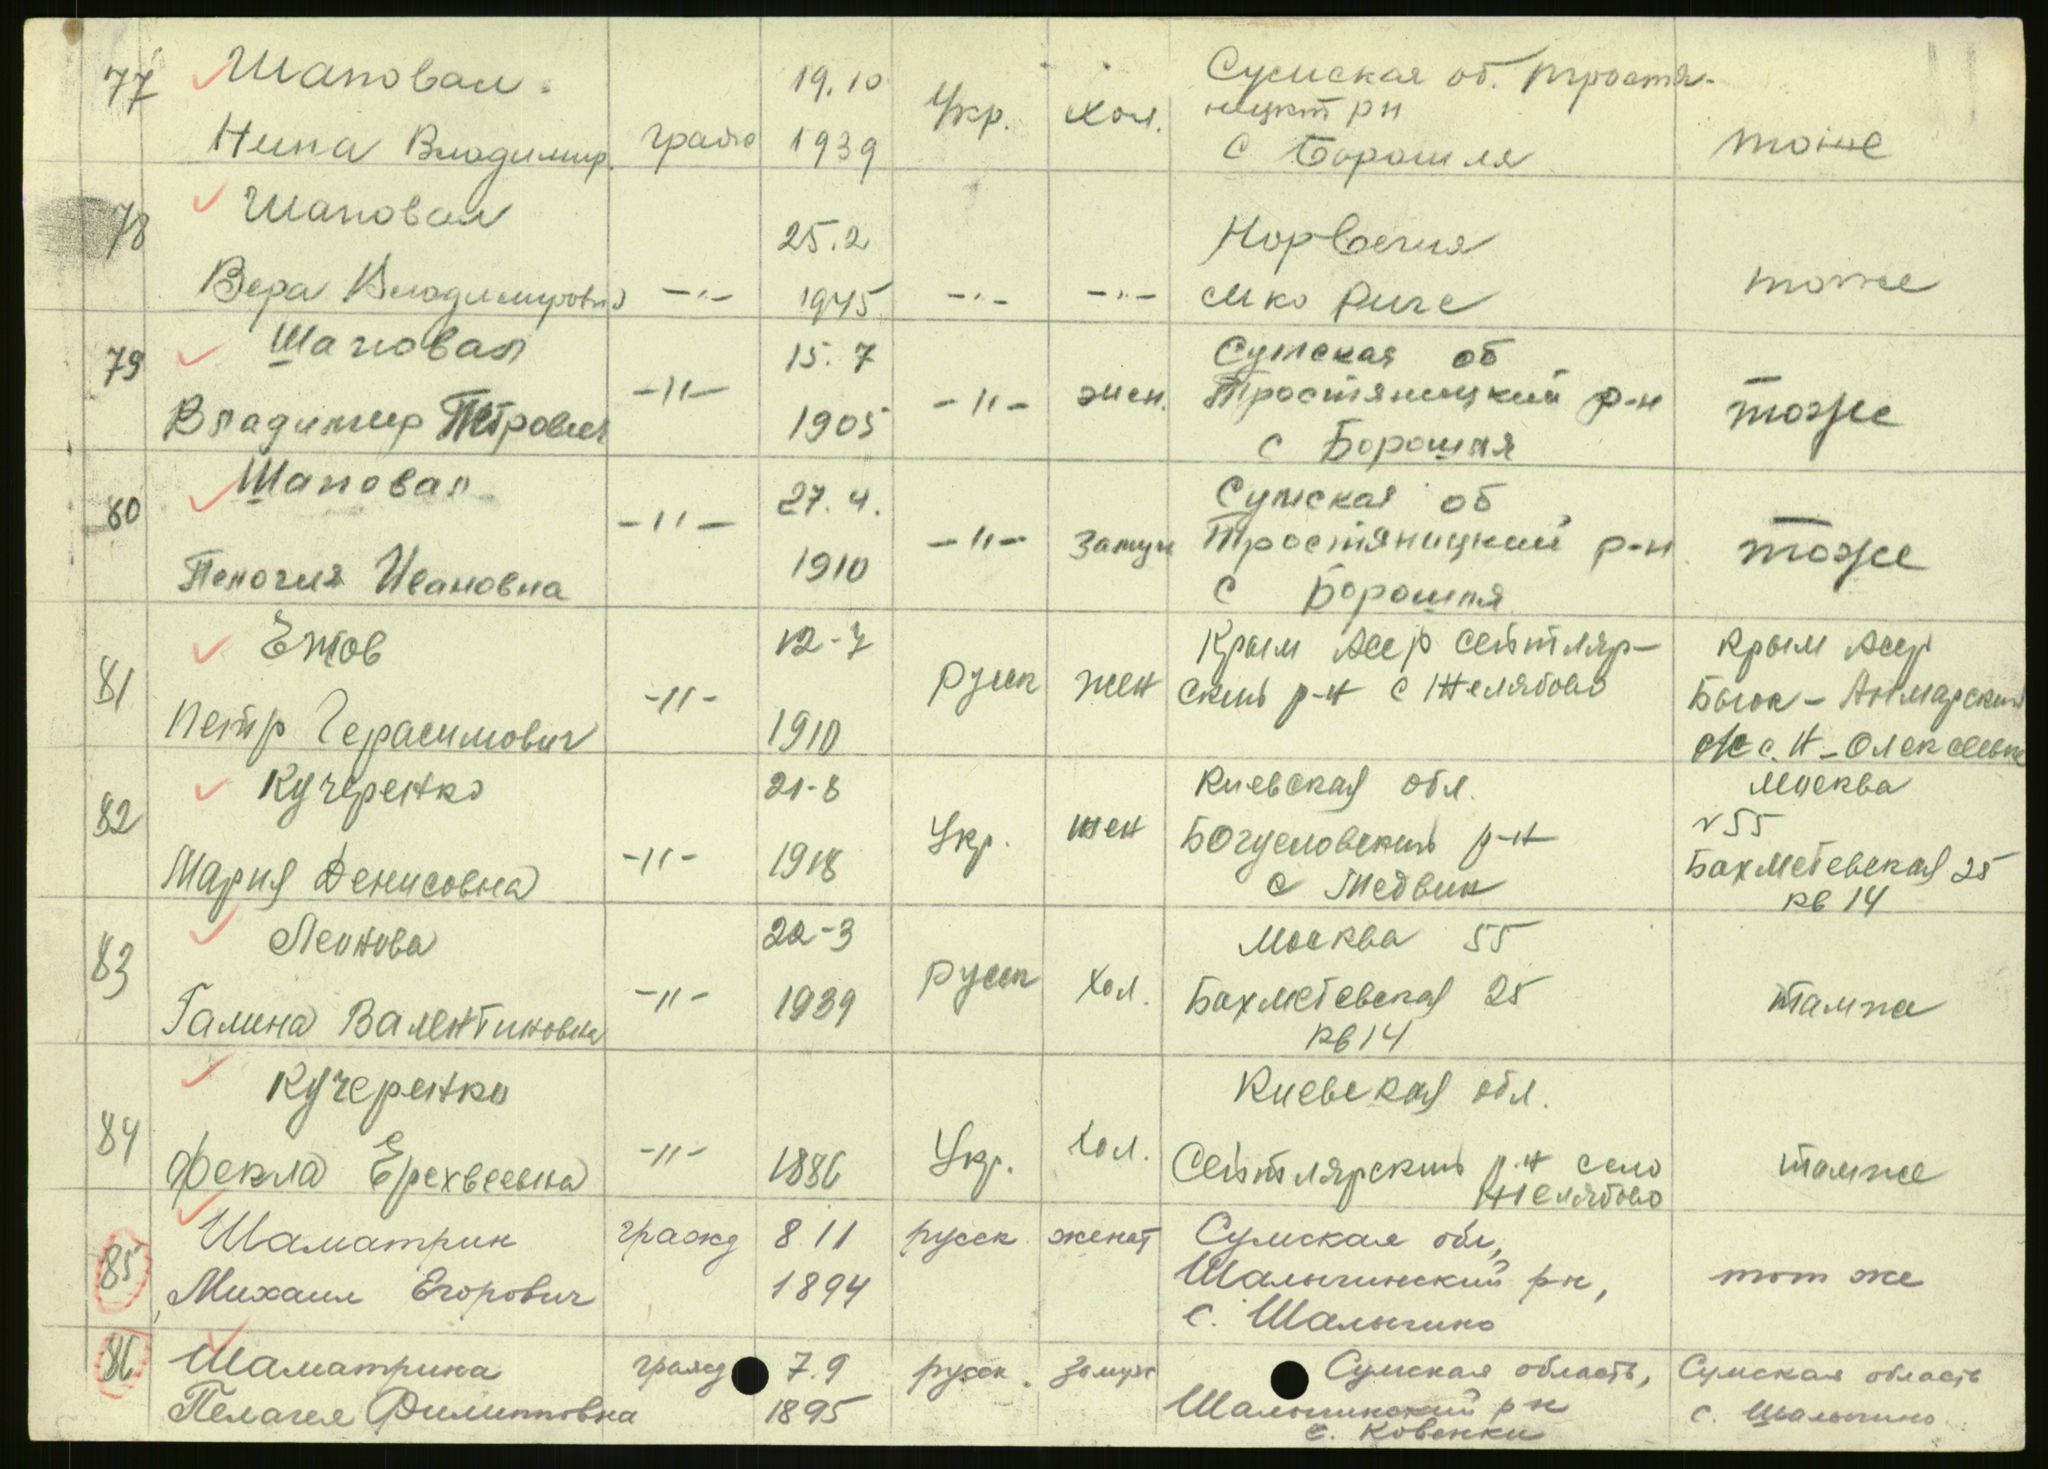 77 Шаповал 19.10 Укр. Хол. Сумская об. тростя-
Нина Владимир. гражд 1939 ницкт р н
с Борошля тоже
78 Шаповал 25.2 Норвегия
Вера Владимировна -"- 1945 -"- -"- тоже
79 Шаповал 15.7 Сумская об
Владимир Петрович -"- 1905 -"- жен. Тростяницкий р-н тоже
с Борошля
80 Шаповал 27.4. Сумская об
Пелогия Ивановна -"- 1910 -"- замуж Тростяницкий р-н тоже
с Борошля
81 Ежов 12-7 русск жен Крым Асср Сейтляр- Крым Асср
Петр Герасимович -"- 1910 ский р-н с Желябово Бьюк-Анларский
с. Н-Олексеевка
82 Кучеренко 21-8 Киевская обл. Москва
№55
Мария Денисовна -"- 1918 Укр. жен Богуславский р-н Бахметевская 25
с Медвин кв 14
83 Леонова 22-3 русск Хол. Москва 55
Галина Валентиновна -"- 1939 Бахметевская 25 тамже
кв 14
84 Кучеренко Киевская обл.
Фекла Ерехвеевна -"- 1886 Укр. Хол. Сейтлярский р-н село тамже
Желябово
85 Шаматрин гражд 8.11 русск женат Сумская обл,
Михаил Егорович 1894 Шалыгинский рн, тот же
с. Шалыгино
86 Шаматрина гражд 7.9 русск. замуж Сумская область, Сумская область
Пелагея Филипповна 1895 Шалыгинский рн с. Шалыгино
с. Ковенки